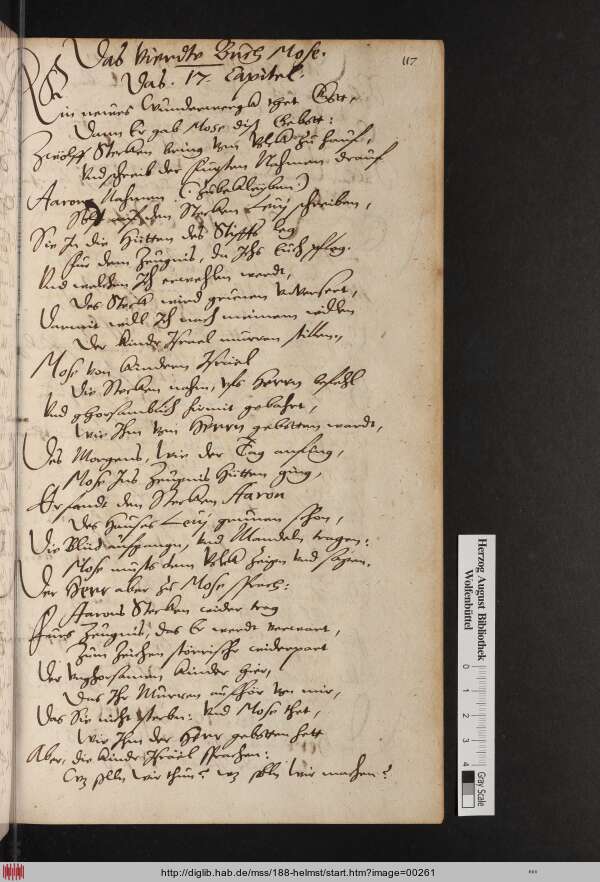 117
Das Vierdte Buch Mose.
Das. 17 Capitel.
Ein neues Wunderwergk thet Gott,
Dann Er gab Mose diß Gebott:
Zwölff Stecken bring vom Volck zu hauf,
Und schreib der Fürsten Nahmen drauf
Aarons Nahmen (: zubekleyben)
Solt auf den Stecken Levj schreiben,
Sie In die Hütten des Stiffts leg
Für dem Zeugnis, da Ichs Euch pfleg.
Und welchen Ich erwehlen werdt,
Des Steck wird grunen
Darmit will Ich nach meinem willen
Der Kinder Israel murren stillen,
Mose von Kindern Israel
Die Stecken nahm, uffs Herrn befehl
Und ghorsamblich hirmit gebahrt,
Wie Ihm vom Herrn gebotten wardt,
Des Morgens, wie der Tag anfing,
Mose Ins Zeugnis Hütten ging,
Er fandt den Stecken Aaron
Des Hauses Levj grunen schon,
Die Blüd aufgangen, und Mandeln tragen:
Mose musts dem Volck zeigen und sagen.
Der Herr aber zu Mose sprach:
Aarons Stecken wider trag
Fürs Zeugnis, das Er werdt verwart,
Zum Zeichen störrische widerpart
Der unghorsamen Kinder hier,
Das Ihr Murren aufhör von mir,
Das Sie nicht sterben: Und Mose thet,
Wie Ihm der Herr gebotten hett
Aber, die Kinder Israel sprachen:
Wz solln wir thun? wz solln wir machen?
Herzog August Bibliothek
Wolfenbüttel
0 1 2 3 4
Gray Scale
http://diglib.hab.de/mss/188-helmst/start.htm?image=00261